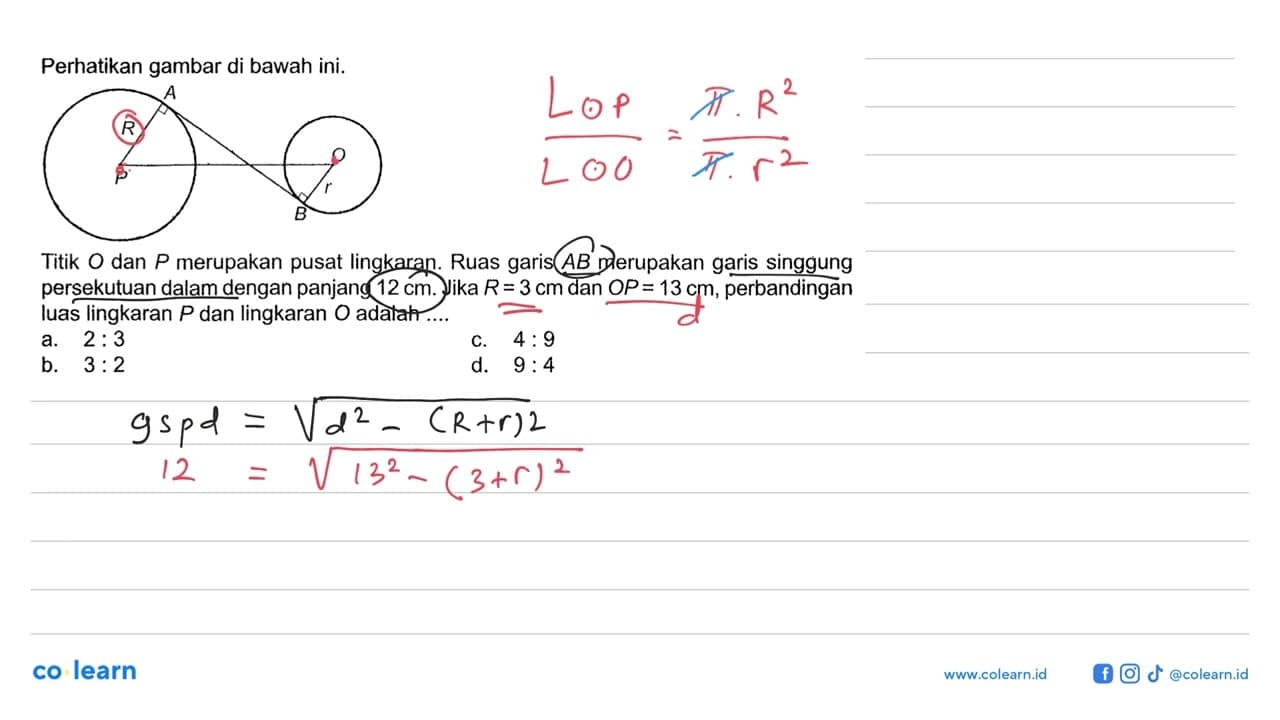 Perhatikan gambar di bawah ini.
A
R
P
O
r
B
L⊙P / L⊙O = π . R² / π . r²
Titik O dan P merupakan pusat lingkaran. Ruas garis AB merupakan garis singgung
persekutuan dalam dengan panjang 12 cm. Jika R = 3 cm dan OP = 13 cm, perbandingan
luas lingkaran P dan lingkaran O adalah ....
d
a. 2 : 3 c. 4 : 9
b. 3 : 2 d. 9 : 4
gspd = √d² - (R+r)2
12 = √13² - (3+r)²
co learn
www.colearn.id
@colearn.id